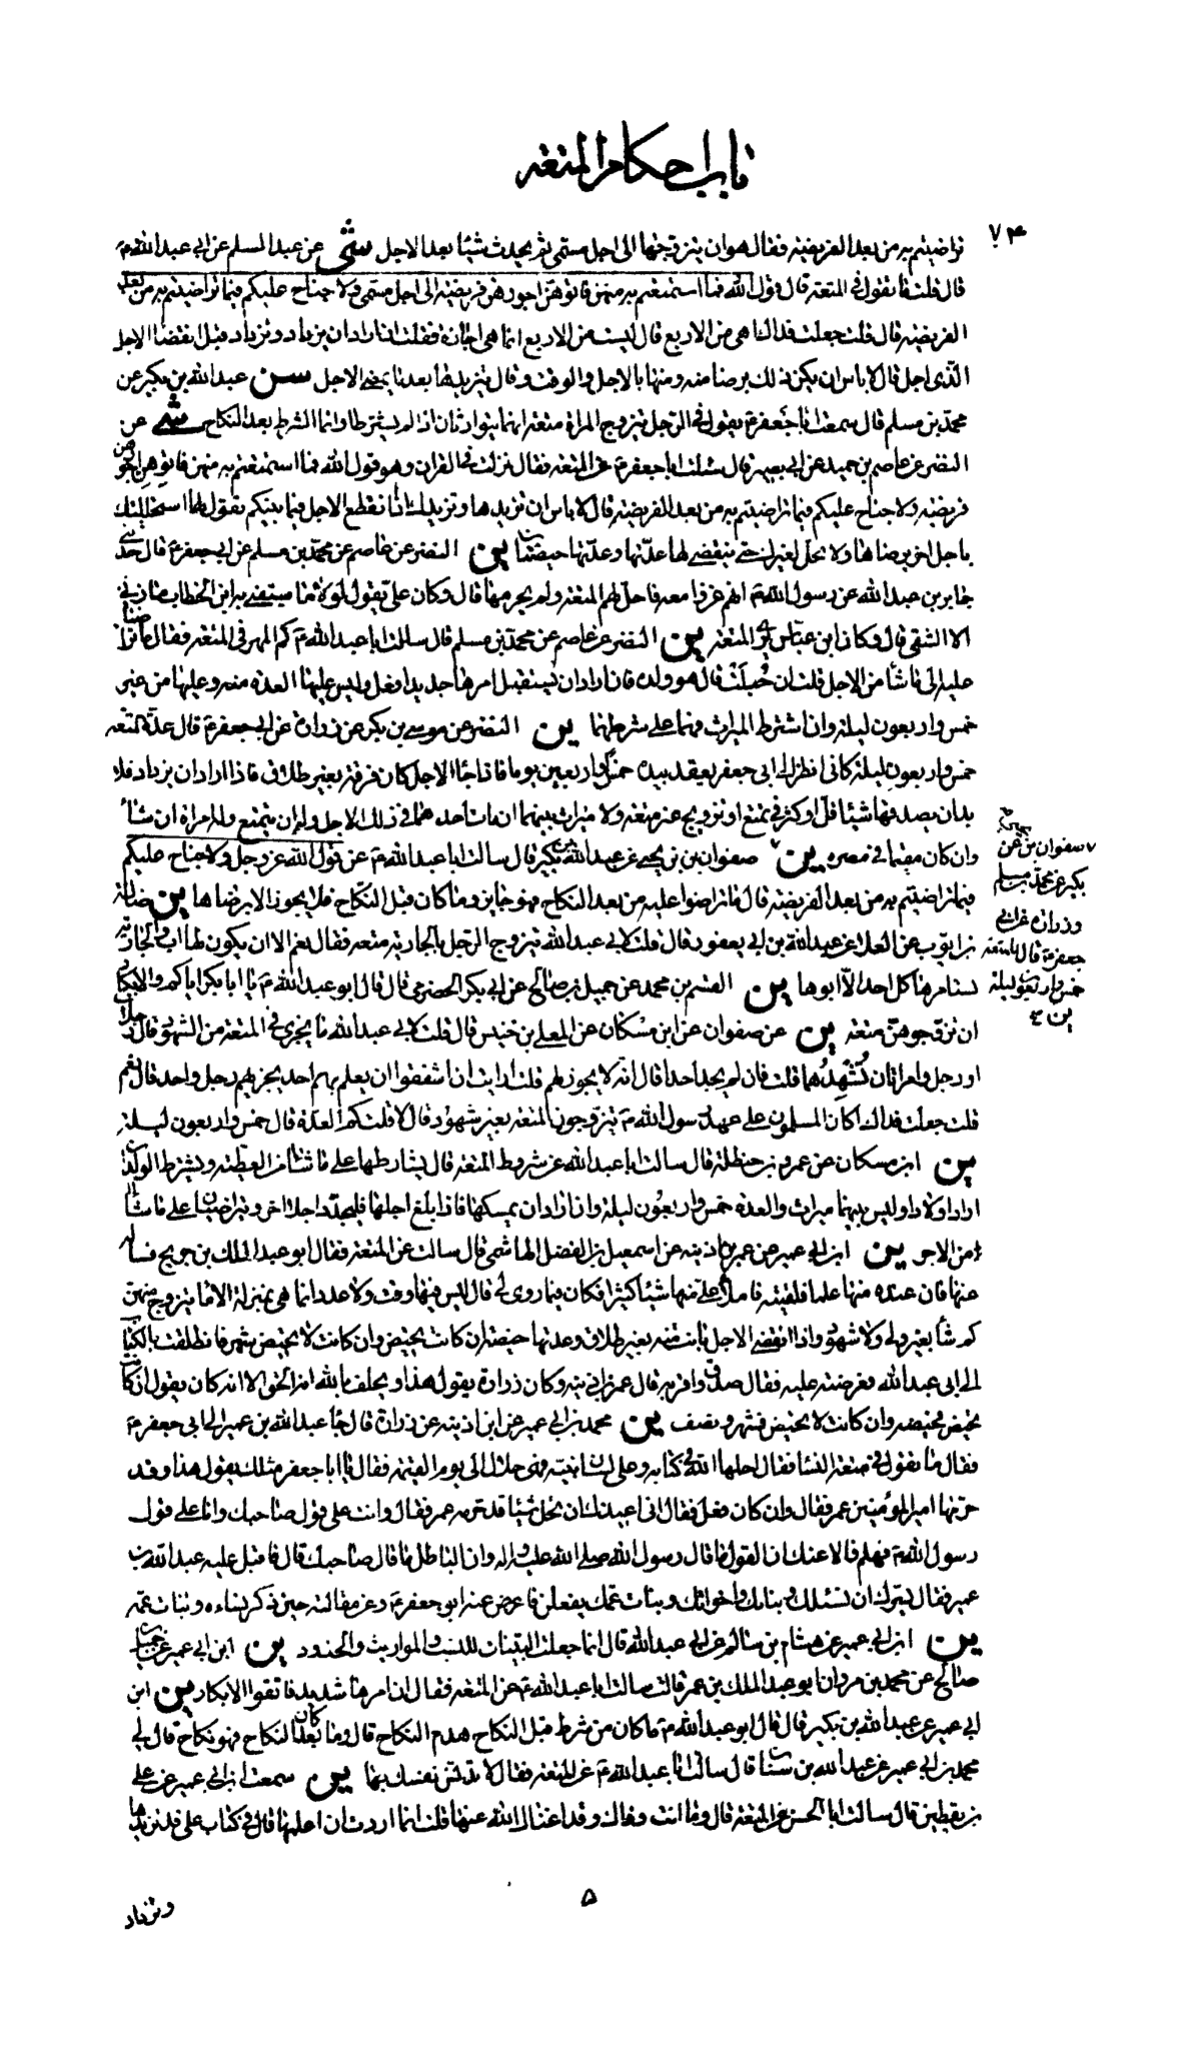 باب احكام المتعة
۷۴
تراضيتم به من بعد الفريضة فقال هو ان يتزوجها الى اجل مسمى ثم يحدث شيئا بعد الاجل شى عن عبد السلم عن ابي عبد الله ع
قال قلت ما تقول في المتعة قال قول الله فما استمتعتم به منهن فاتوهن اجورهن فريضة الى اجل مسمى ولا جناح عليكم فيما تراضيتم به من بعد
الفريضة قال قلت جعلت فداك اهى من الاربع قال ليست من الاربع انما هى اجارة فقلت ان اراد ان يزداد وتزداد قبل انقضا الاجل
الذى اجل قال لا باس ان يكن ذلك برضا منه ومنها بالاجل والوقت وقال يزيدها بعد ما يمضى الاجل سن عبد الله بن بكير عن
محمد بن مسلم قال سمعت ابا جعفر ع يقول في الرجل يتزوج المراة متعة انهما يتوارثان اذا لم يشترطا وانما الشرط بعد النكاح شى عن
النضر عن عاصم بن حميد عن ابي بصير قال سئلت ابا جعفر ع عن المتعة فقال نزلت في القران وهو قول الله فما استمتعتم به منهن فاتوهن اجورهن
فريضة ولا جناح عليكم فيما تراضيتم به من بعد الفريضة قال لا باس ان تزيدها وتزيدك اذا انقطع الاجل فيما بينكم تقول لها استحللتك
باجل اخر برضا منها ولا تحل لغيرك حتى تنقضى لها عدتها وعدتها حيضتان ين النضر عن عاصم عن محمد بن مسلم عن ابي جعفر ع قال حدثني
جابر بن عبد الله عن رسول الله ص انهم غزوا معه فاحل لهم المتعة ولم يحرمها قال وكان على يقول لولا ما سبقنى به ابن الخطاب ما زنى
الا الشقى قال وكان ابن عباس يرى المتعة ين النضر عن عاصم عن محمد بن مسلم قال سالت ابا عبد الله ع كم المهر في المتعة فقال ما تراضيا
عليه الى ما شا من الاجل قلت ان حُبِلَتْ قال هو ولده فان اراد ان يستقبل امرها جديدا فعل وليس عليها العدة منه وعليها من غيره
خمس واربعون ليلة وان اشترط الميراث فهما على شرطهما ين النضر عن موسى بن بكر عن زرارة عن ابي جعفر ع قال عدة المتعة
خمس واربعون ليلة كانى انظر الى ابي جعفر يعقد بيده خمس واربعين يوما فاذا جا الاجل كان فرقة بغير طلاق فاذا اراد ان يزداد فلا
بد ان يصدقها شيئا قل او كثر في تمتع او تزويج عنه متعة ولا ميراث بينهما ان مات احدهما في ذلك الاجل وله ان يتمتع وله امراة ان شا
وان كان مقيما في مصره ين صفوان بن يحيى عن عبد الله بن بكير قال سالت ابا عبد الله ع عن قول الله عز وجل ولا جناح عليكم
فيما تراضيتم به من بعد الفريضة قال ما تراضوا عليه من بعد النكاح فهو جايز وما كان قبل النكاح فلا يجوز الا برضاها ين فضالة
بن ايوب عن العلا عن عبد الله بن ابي يعفور قال قلت لابي عبد الله يتزوج الرجل بالجارية متعة فقال نعم الا ان يكون لها اب والجارية
تستامرها كل احد الا ابوها ين القسم بن محمد عن جميل بن صالح عن ابي بكر الحضرمي قال قال ابو عبد الله ع يا ابا بكر اياكم والابكار
ان تزوجوهن متعة ين عن صفوان عن ابن مسكان عن المعلى بن خنيس قال قلت لابي عبد الله ما يجزى في المتعة من الشهود قال رجلان
او رجل وامراتان تُشْهِدُهما قلت فان لم يجد احدا قال انه لا يجوز لهم قلت ارايت ان اشفقوا ان يعلم بهم احد يجزيهم رجل واحد قال نعم
قلت جعلت فداك اكان المسلمون على عهد رسول الله ص يتزوجون المتعة بغير شهود قال لا قلت كم العدة قال خمس واربعون ليلة
ين ابن مسكان عن عمر بن حنظلة قال سالت ابا عبد الله عن شروط المتعة قال يشارطها على ما شا من العطية ويشترط الولد ان
اراد اولادا وليس بينهما ميراث والعدة خمس واربعون ليلة وان اراد ان يمسكها فاذا بلغ اجلها فليجدد اجلا اخر ويتراضيان على ما شا
من الاجر ين ابن ابي عمير عن عمر بن اذينة عن اسمعيل بن الفضل الهاشمى قال سالت عن المتعة فقال ابو عبد الملك بن جريح فساله
عنها فان عنده منها علما فلقيته فاملا على منها شيئا كثيرا فكان فيما روى لى قال ليس فيها وقت ولا عدد انما هى بمنزلة الاما يتزوج منهن
كم شا بغير ولى ولا شهود واذا انقضى الاجل بانت منه بغير طلاق وعدتها حيضة ان كانت تحيض وان كانت لا تحيض شهر فانطلقت بالكتاب
الى ابي عبد الله فعرضته عليه فقال صدق واقر به قال عمر بن اذينة وكان زرارة يقول هذا ويحلف بالله انه الحق الا انه كان يقول ان كانت
تحيض فحيضة وان كانت لا تحيض فشهر ونصف ين محمد بن ابي عمير عن ابن اذينة عن زرارة قال جا عبد الله بن عمير الى ابي جعفر ع
فقال ما تقول في متعة النسا فقال احلها الله في كتابه وعلى لسان نبيه فهى حلال الى يوم القيمة فقال يا ابا جعفر مثلك يقول هذا وقد
حرمها امير المؤمنين عمر فقال وان كان فعل فقال انى اعيذك ان تحل شيئا قد حرمه عمر فقال وانت على قول صاحبك وانا على قول
رسول الله ص فهلم فالاعنك ان القول ما قال رسول الله صلى الله عليه واله وان الباطل ما قال صاحبك قال فاقبل عليه عبد الله بن
عمير فقال يسرك ان نسائك وبناتك واخواتك وبنات عمك يفعلن فاعرض عنه ابو جعفر ع وعن مقالته حين ذكر نساءه وبنات عمه
ين ابن ابي عمير عن هشام بن سالم عن ابي عبد الله قال انما جعلت البينات للنسب والمواريث والحدود ين ابن ابي عمير عن جميل بن
صالح عن محمد بن مروان ابو عبد الملك بن عمر قال سالت ابا عبد الله ع عن المتعة فقال ان امرها شديد فاتقوا الابكار ين ابن
ابي عمير عن عبد الله بن بكير قال قال ابو عبد الله ع ما كان من شرط قبل النكاح هدم النكاح قال وما كان بعد النكاح فهو نكاح قال لى
محمد بن ابي عمير عن عبد الله بن سنان قال سالت ابا عبد الله ع عن المتعة فقال لا تدنس نفسك بها ين سمعت ابن ابي عمير عن على
بن يقطين قال سالت ابا الحسن عن المتعة قال وما انت وذاك وقد اغناك الله عنها قلت انما اردت ان اعلمها قال في كتاب على قد نزيدها
صفوان بن عن
بكير عن محمد بن مسلم
وزرارة عن ابي
جعفر ع قال المتعة
خمس واربعون ليلة
ين
۵
وتزداد